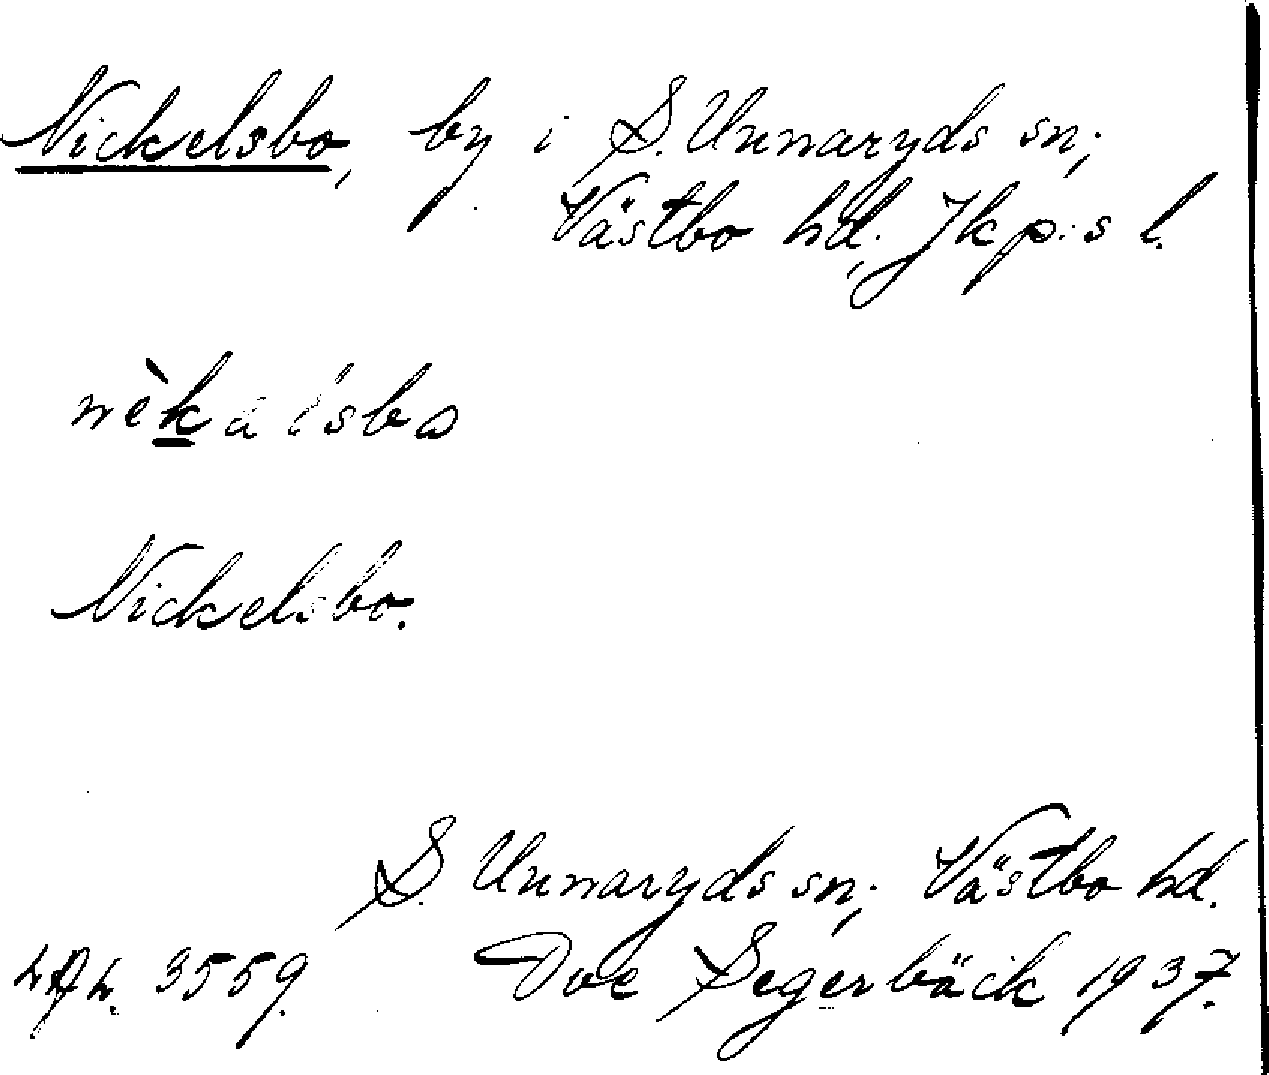 Nickelsbo, by i S. Unnaryds sn;
Västbo hd, Jkp:s l.
Nickelsbo.
S. Unnaryds sn; Västbo hd.
3559. Ove Segerbäck 1937.